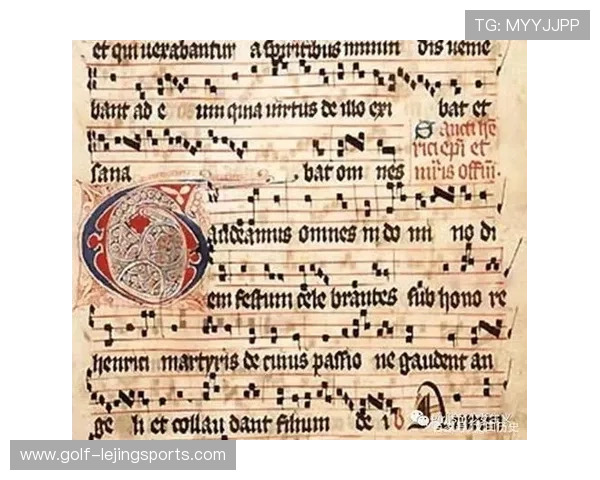 TG: MYYJJPP
et qui uexabantur a spiritibus inmun dis uenie
bant ad e um quia uirtus de illo exi bat et
sana bat om nes
Sancti hē
rici epi et
mris offm.
Gaudeamus omnes in do mi no di
em festum cele brantes sub hono re
henrici martyris de cuius passio ne gaudent an
ge li et collau dant filium de i
www.golf-lejingsports.com